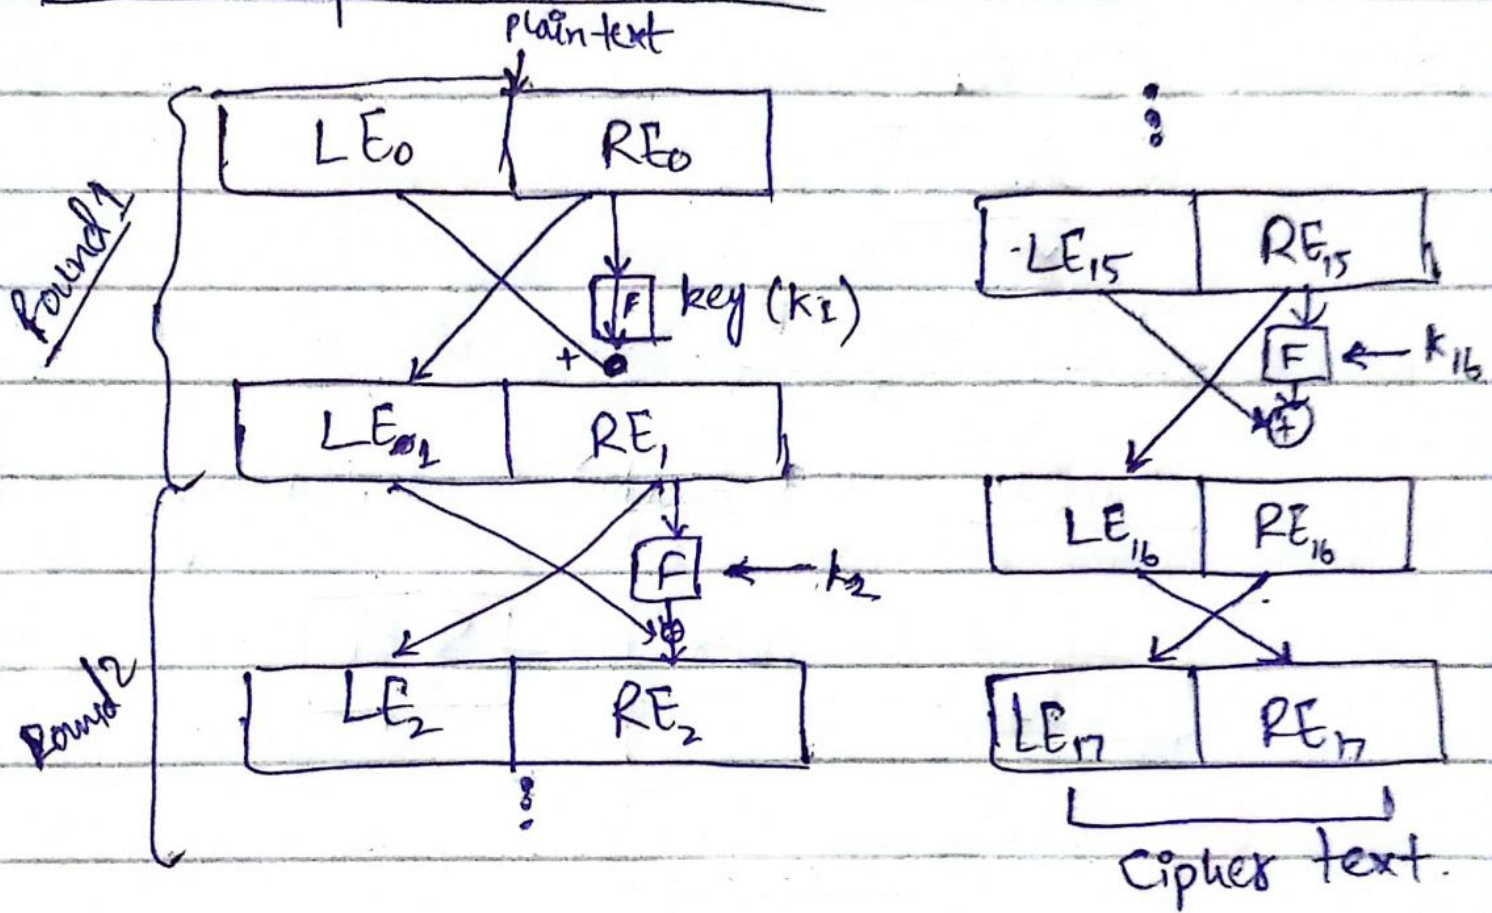 Plaintext
LE₀ RE₀
Round 1
F key (K₁)
+
LE₁ RE₁
F ← k₂
⊕
Round 2
LE₂ RE₂
⋮
⋮
LE₁₅ RE₁₅
F ← K₁₆
⊕
LE₁₆ RE₁₆
LE₁₇ RE₁₇
Cipher text.